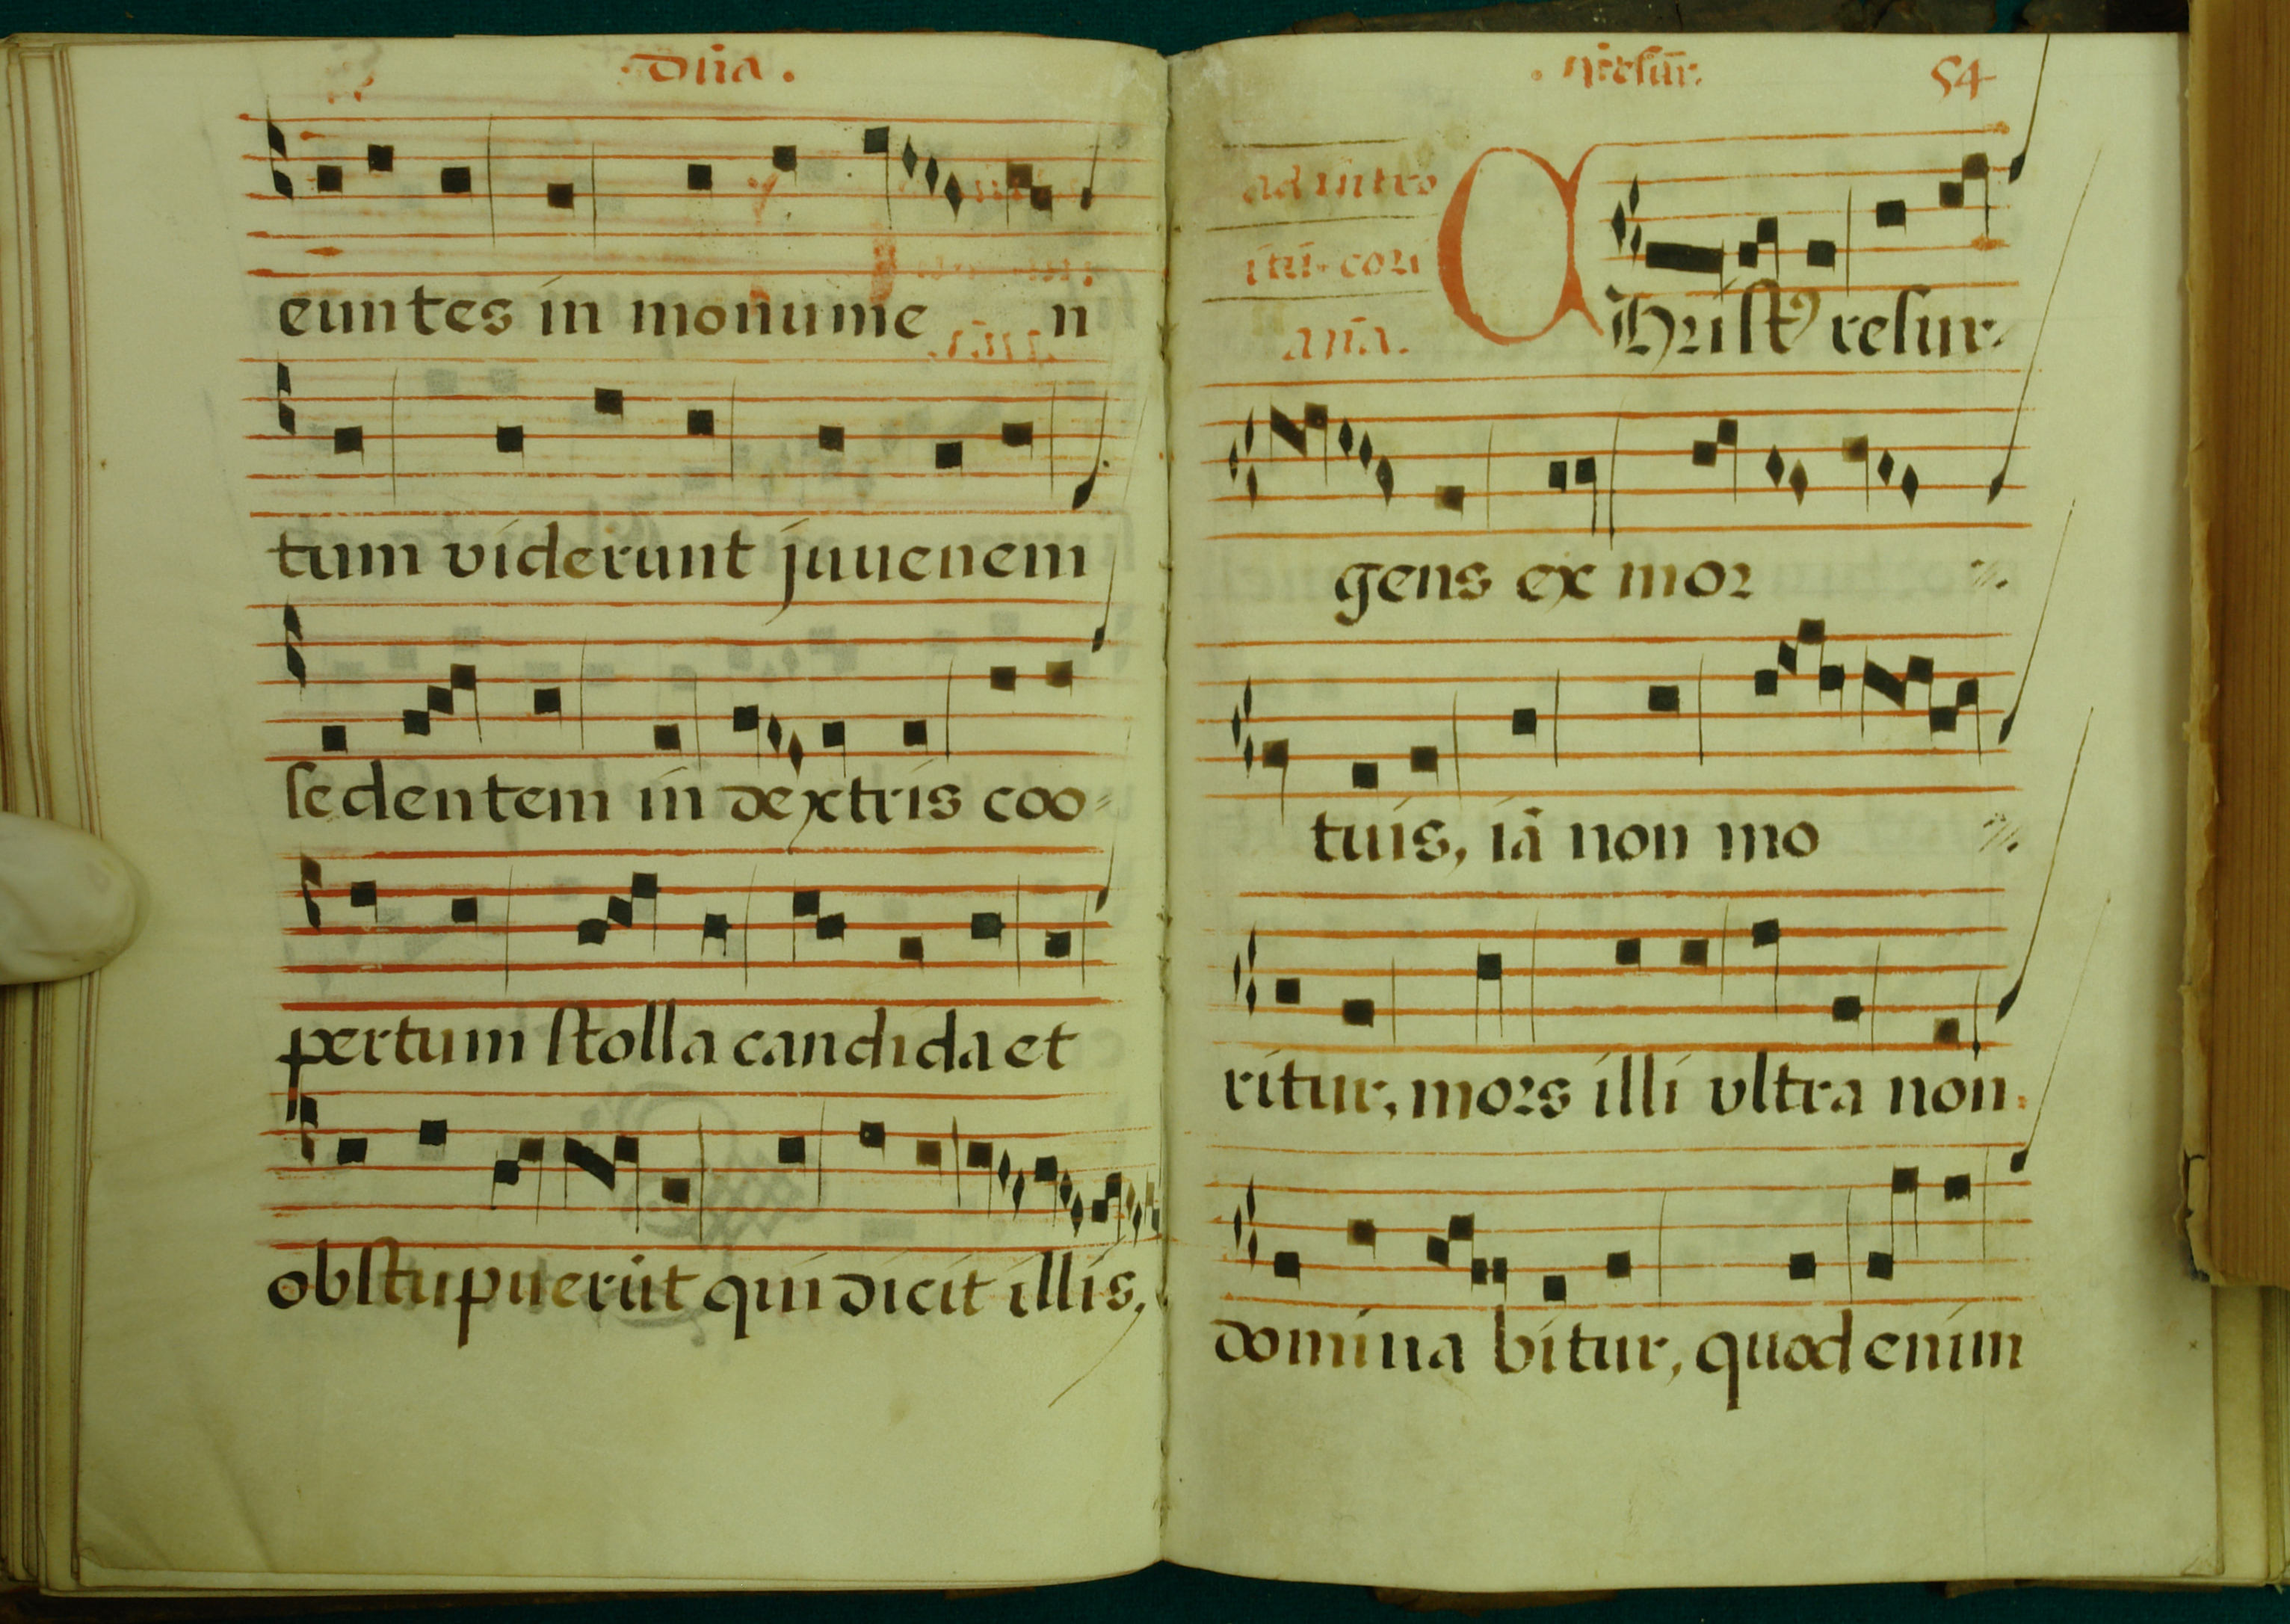 Dn̄a.
euntes in monume n
tum viderunt juuenem
sedentem in dextris coo=
pertum stolla candida et
obstupuerūt qui dicit illis,
54
ad intro
itū. cori
an̄a.
Christꝰ resur=
gens ex mor
tuis, iā non mo
ritur, mors illi vltra non
domina bitur, quod enim